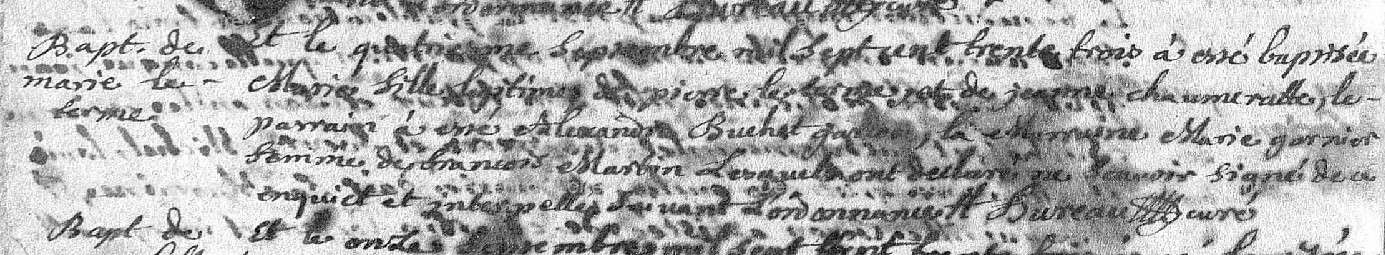 l'ordonnance Bureau curé
Bapt. de Et le quatriesme septembre mil sept cent trente trois á esté baptisée
marie le- Marie fille legitime de pierre leterme et de jeanne chaumeratte, le-
terme parrain á esté Alexandre Buchet garçon, la Marraine Marie garnier
femme de francois Martin Lesquels ont declaré ne scavoir signé de ce
enquiet et interpellés suivant L'ordonnance Bureau curé
Bapt de Et le onze septembre mil sept cent trente